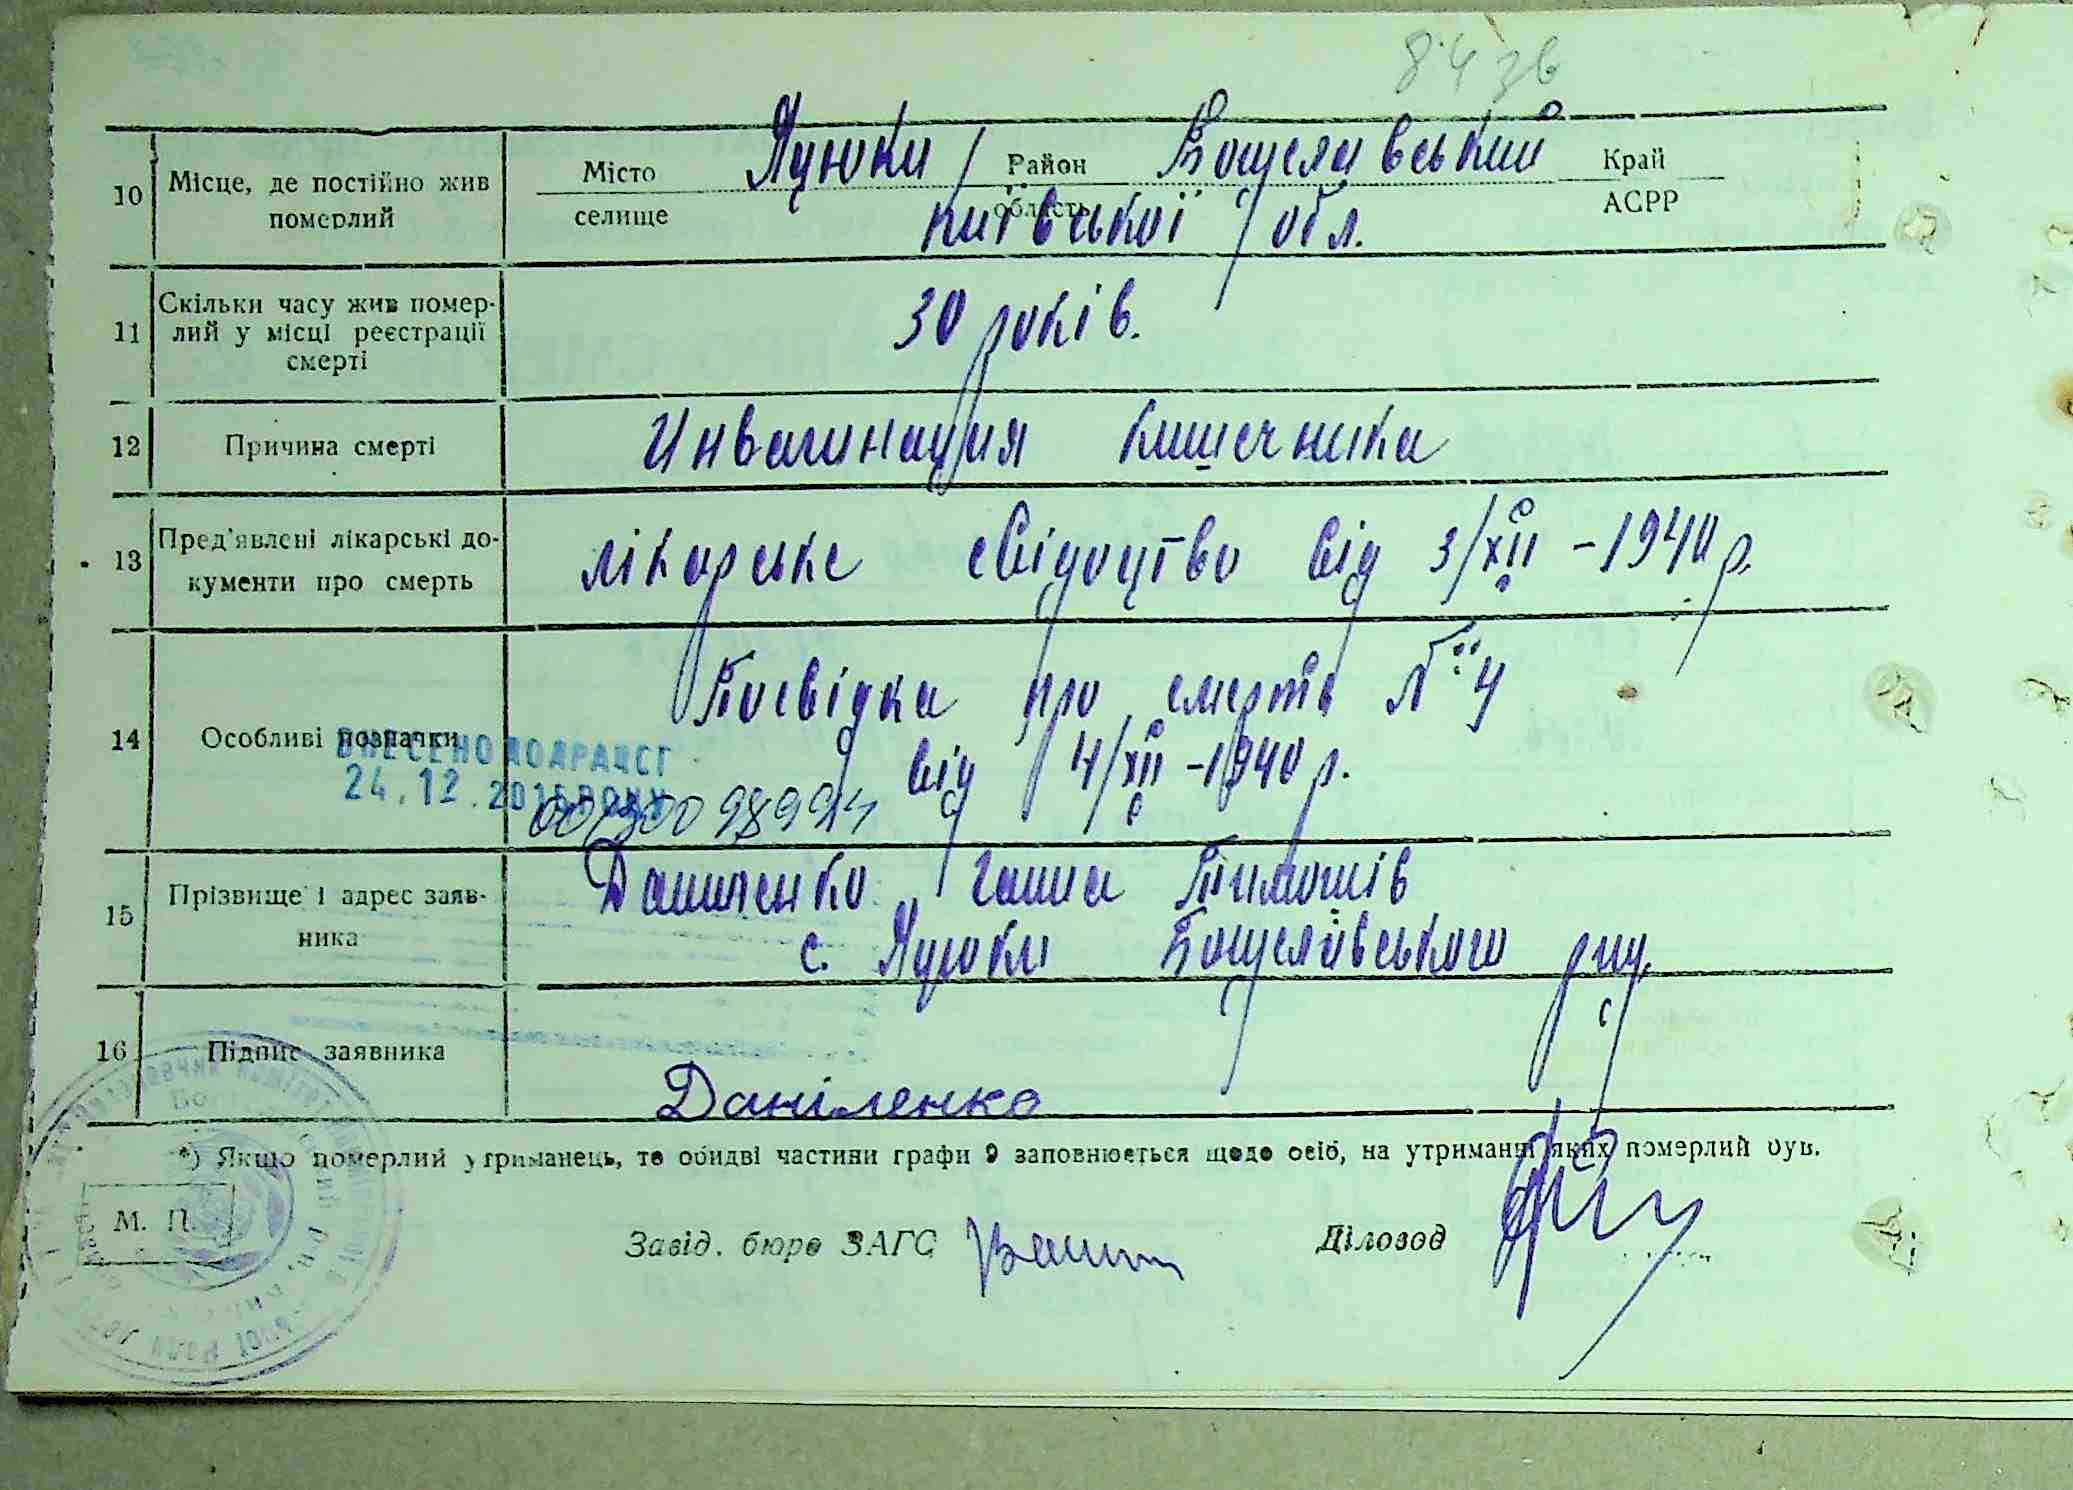 84 зв
10 Місце, де постійно жив померлий
Місто селище Яцюки Район область Богуславський Край АСРР
Київської обл.
11 Скільки часу жив померлий у місці реєстрації смерті
30 років.
12 Причина смерті
Инвагинация кишечника
13 Пред'явлені лікарські документи про смерть
лікарське свідоцтво від 3/XII - 1940 р.
14 Особливі позначки
Посвідка про смерть № 4
від 4/XII - 1940 р.
ВНЕСЕНО ДО ДРАЦСГ
24.12.2015 РОКУ
15 Прізвище і адрес заявника
Даниленко Ганна Тимошів
с. Яцюки Богуславського р-ну
16 Підпис заявника
Даніленко
*) Якщо померлий утриманець, то обидві частини графи 9 заповнюється щодо осіб, на утриманні яких померлий був.
М. П.
Завід. бюро ЗАГС Діловод